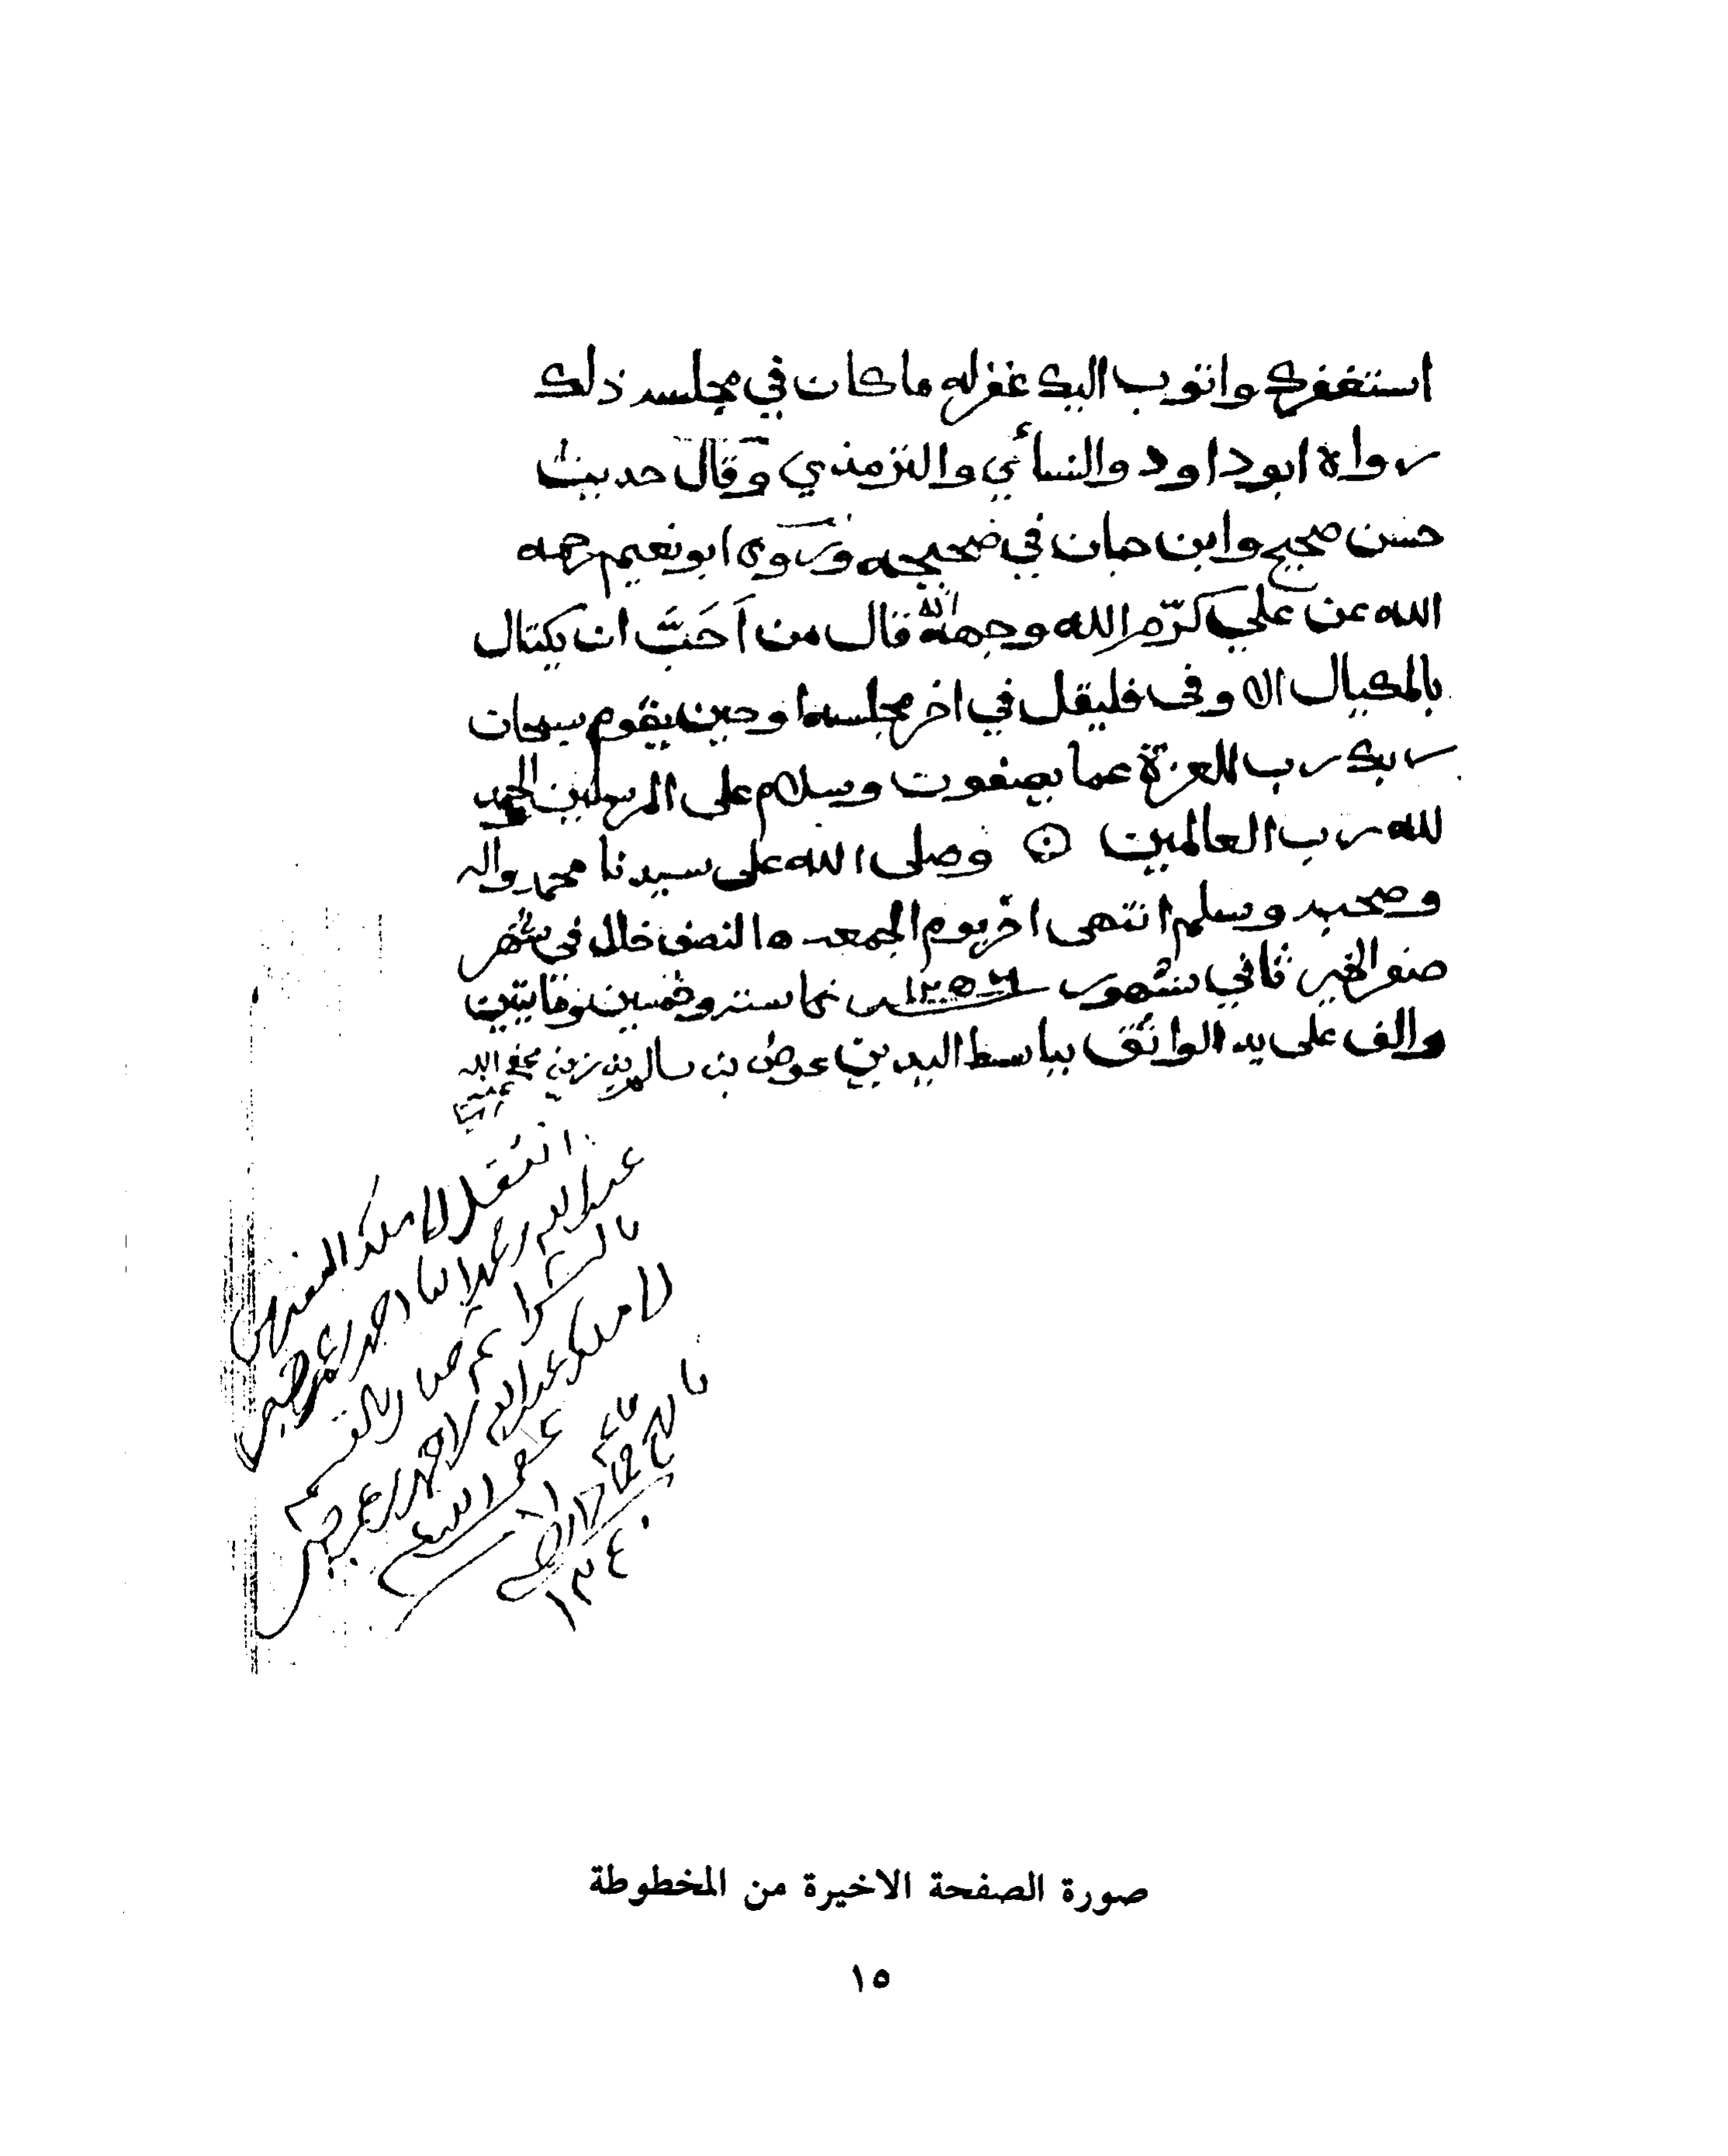 استغفرك واتوب اليك غفر له ما كان في مجلسه ذلك
رواه ابو داود والنسأي والترمذي وقال حديث
حسن صحيح وابن حبان في صحيحه وروى ابو نعيم رحمه
الله عن علي كرّم الله وجهه انه قال من اَحَبَّ ان يكتال
بالمكيال الاوفى فليقل في اخر مجلسه او حين يقوم سبحان
ربك رب العزة عما يصفون وسلام على المرسلين والحمد
لله رب العالمين وصلى الله على سيدنا محمد واله
وصحبه وسلم انتهى اخر يوم الجمعه النصف خلا في شهر
صفر الخير ثاني شهور ١٢٥٦ سته وخمسين ومايتين
والف على يد الواثق بباسط اليدين عوض بن سالم بن زين عفى الله
عنه
انتقل الى ملك
عبدالله احمد
بالشرا
الى ملك عبدالله احمد
عفى الله عنه
١٣٤٠
صورة الصفحة الاخيرة من المخطوطة
١٥